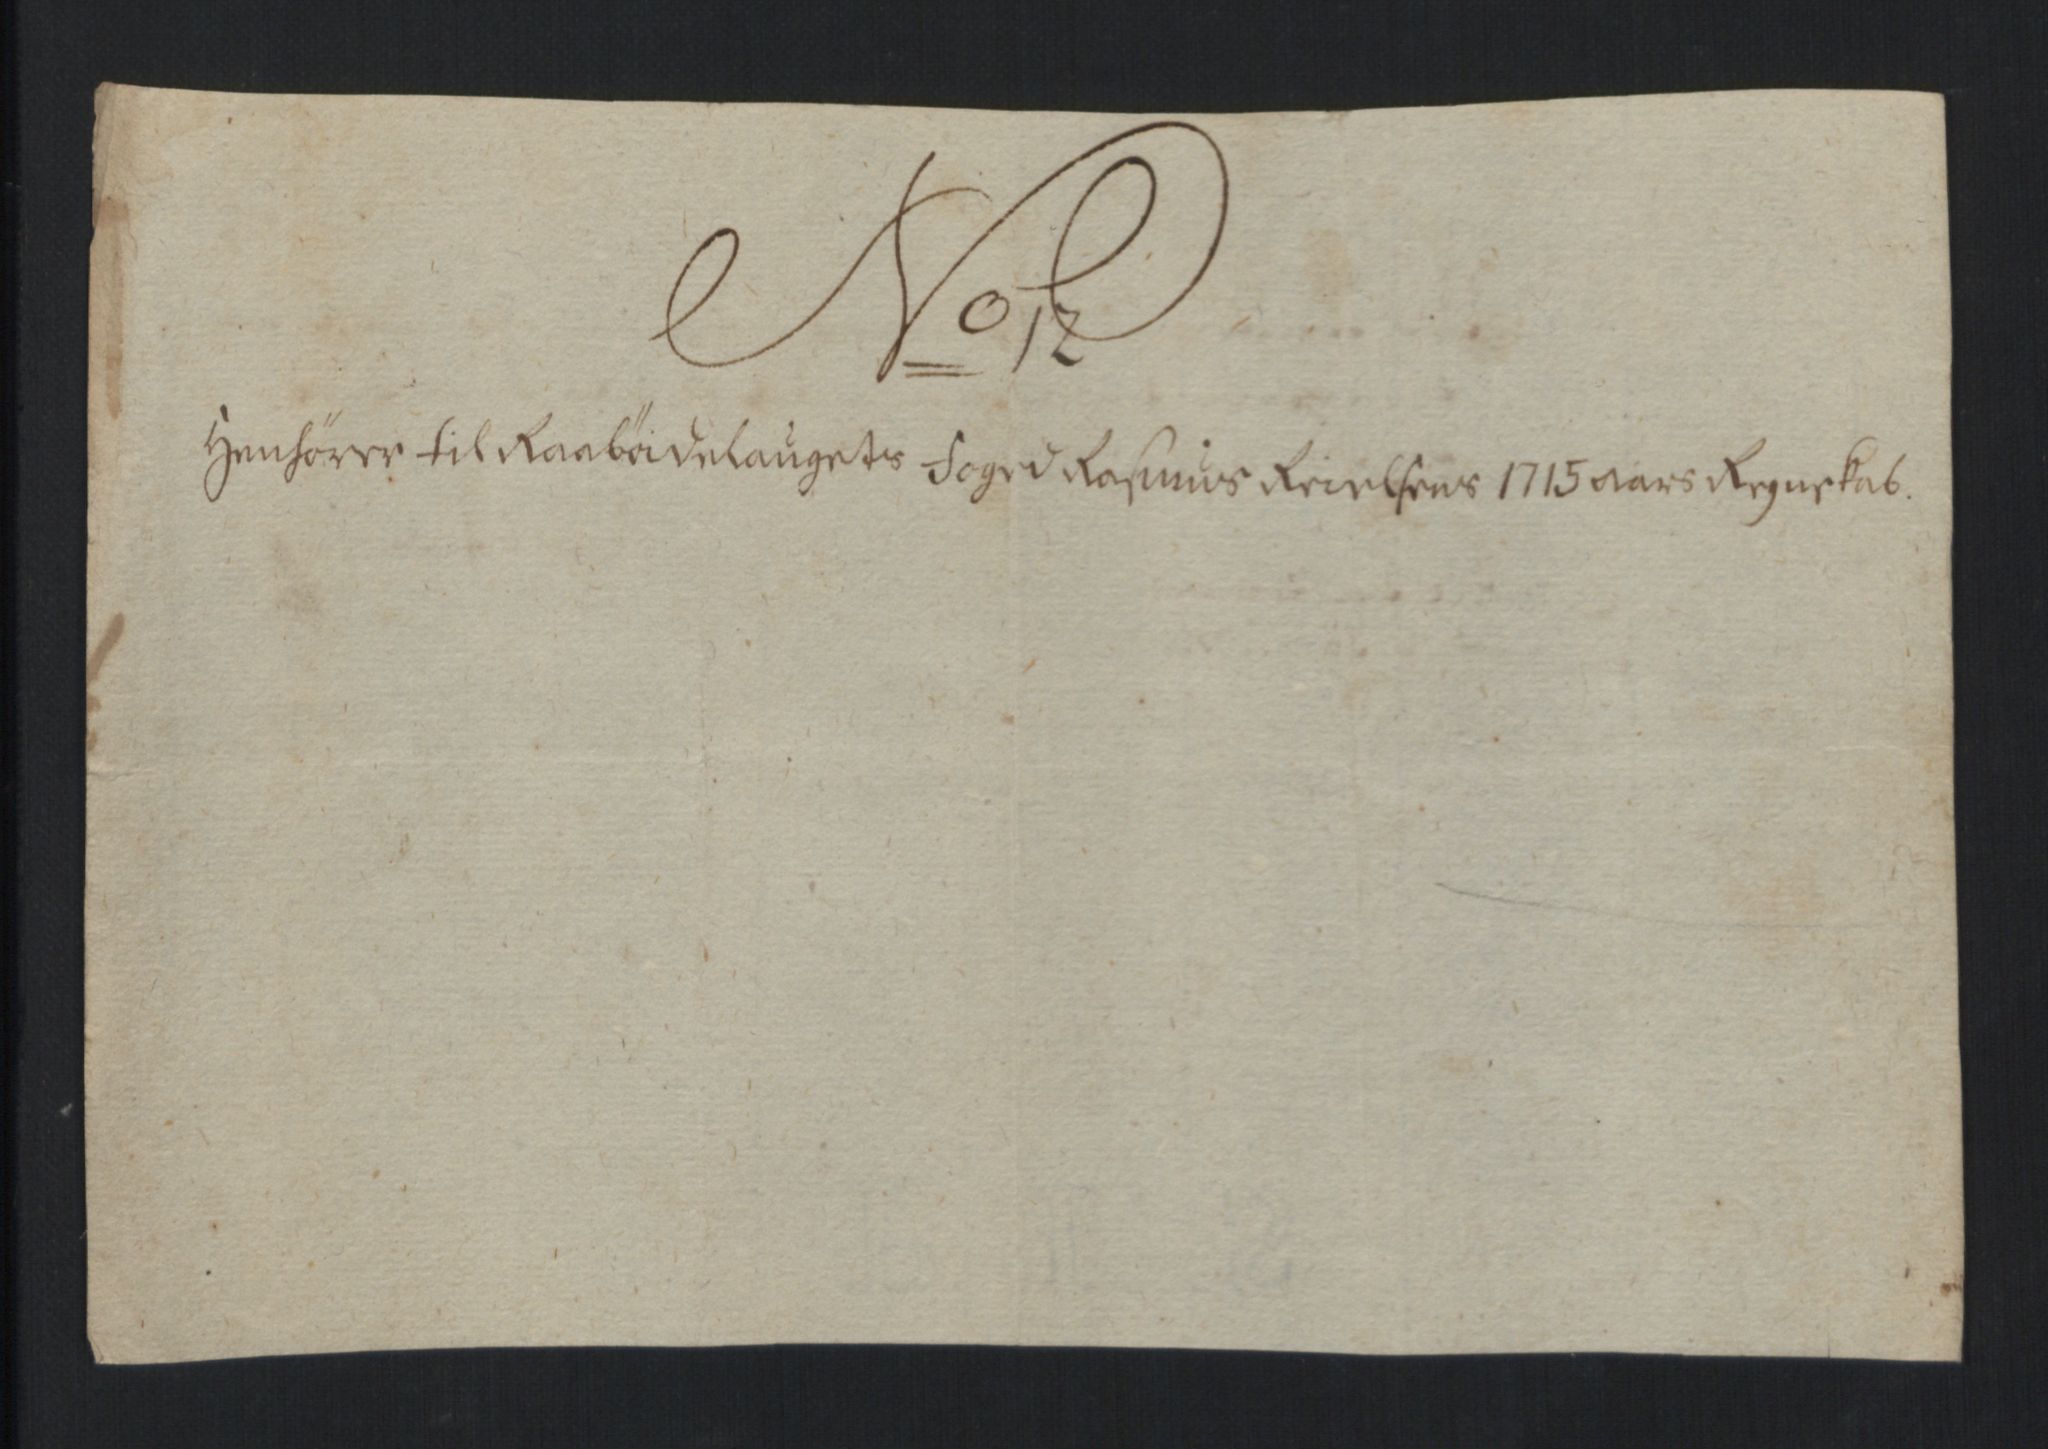 No 12
Henhörer til Raaböidelaugets Foged Rasmus Reielsens 1715 aars Regnskab.